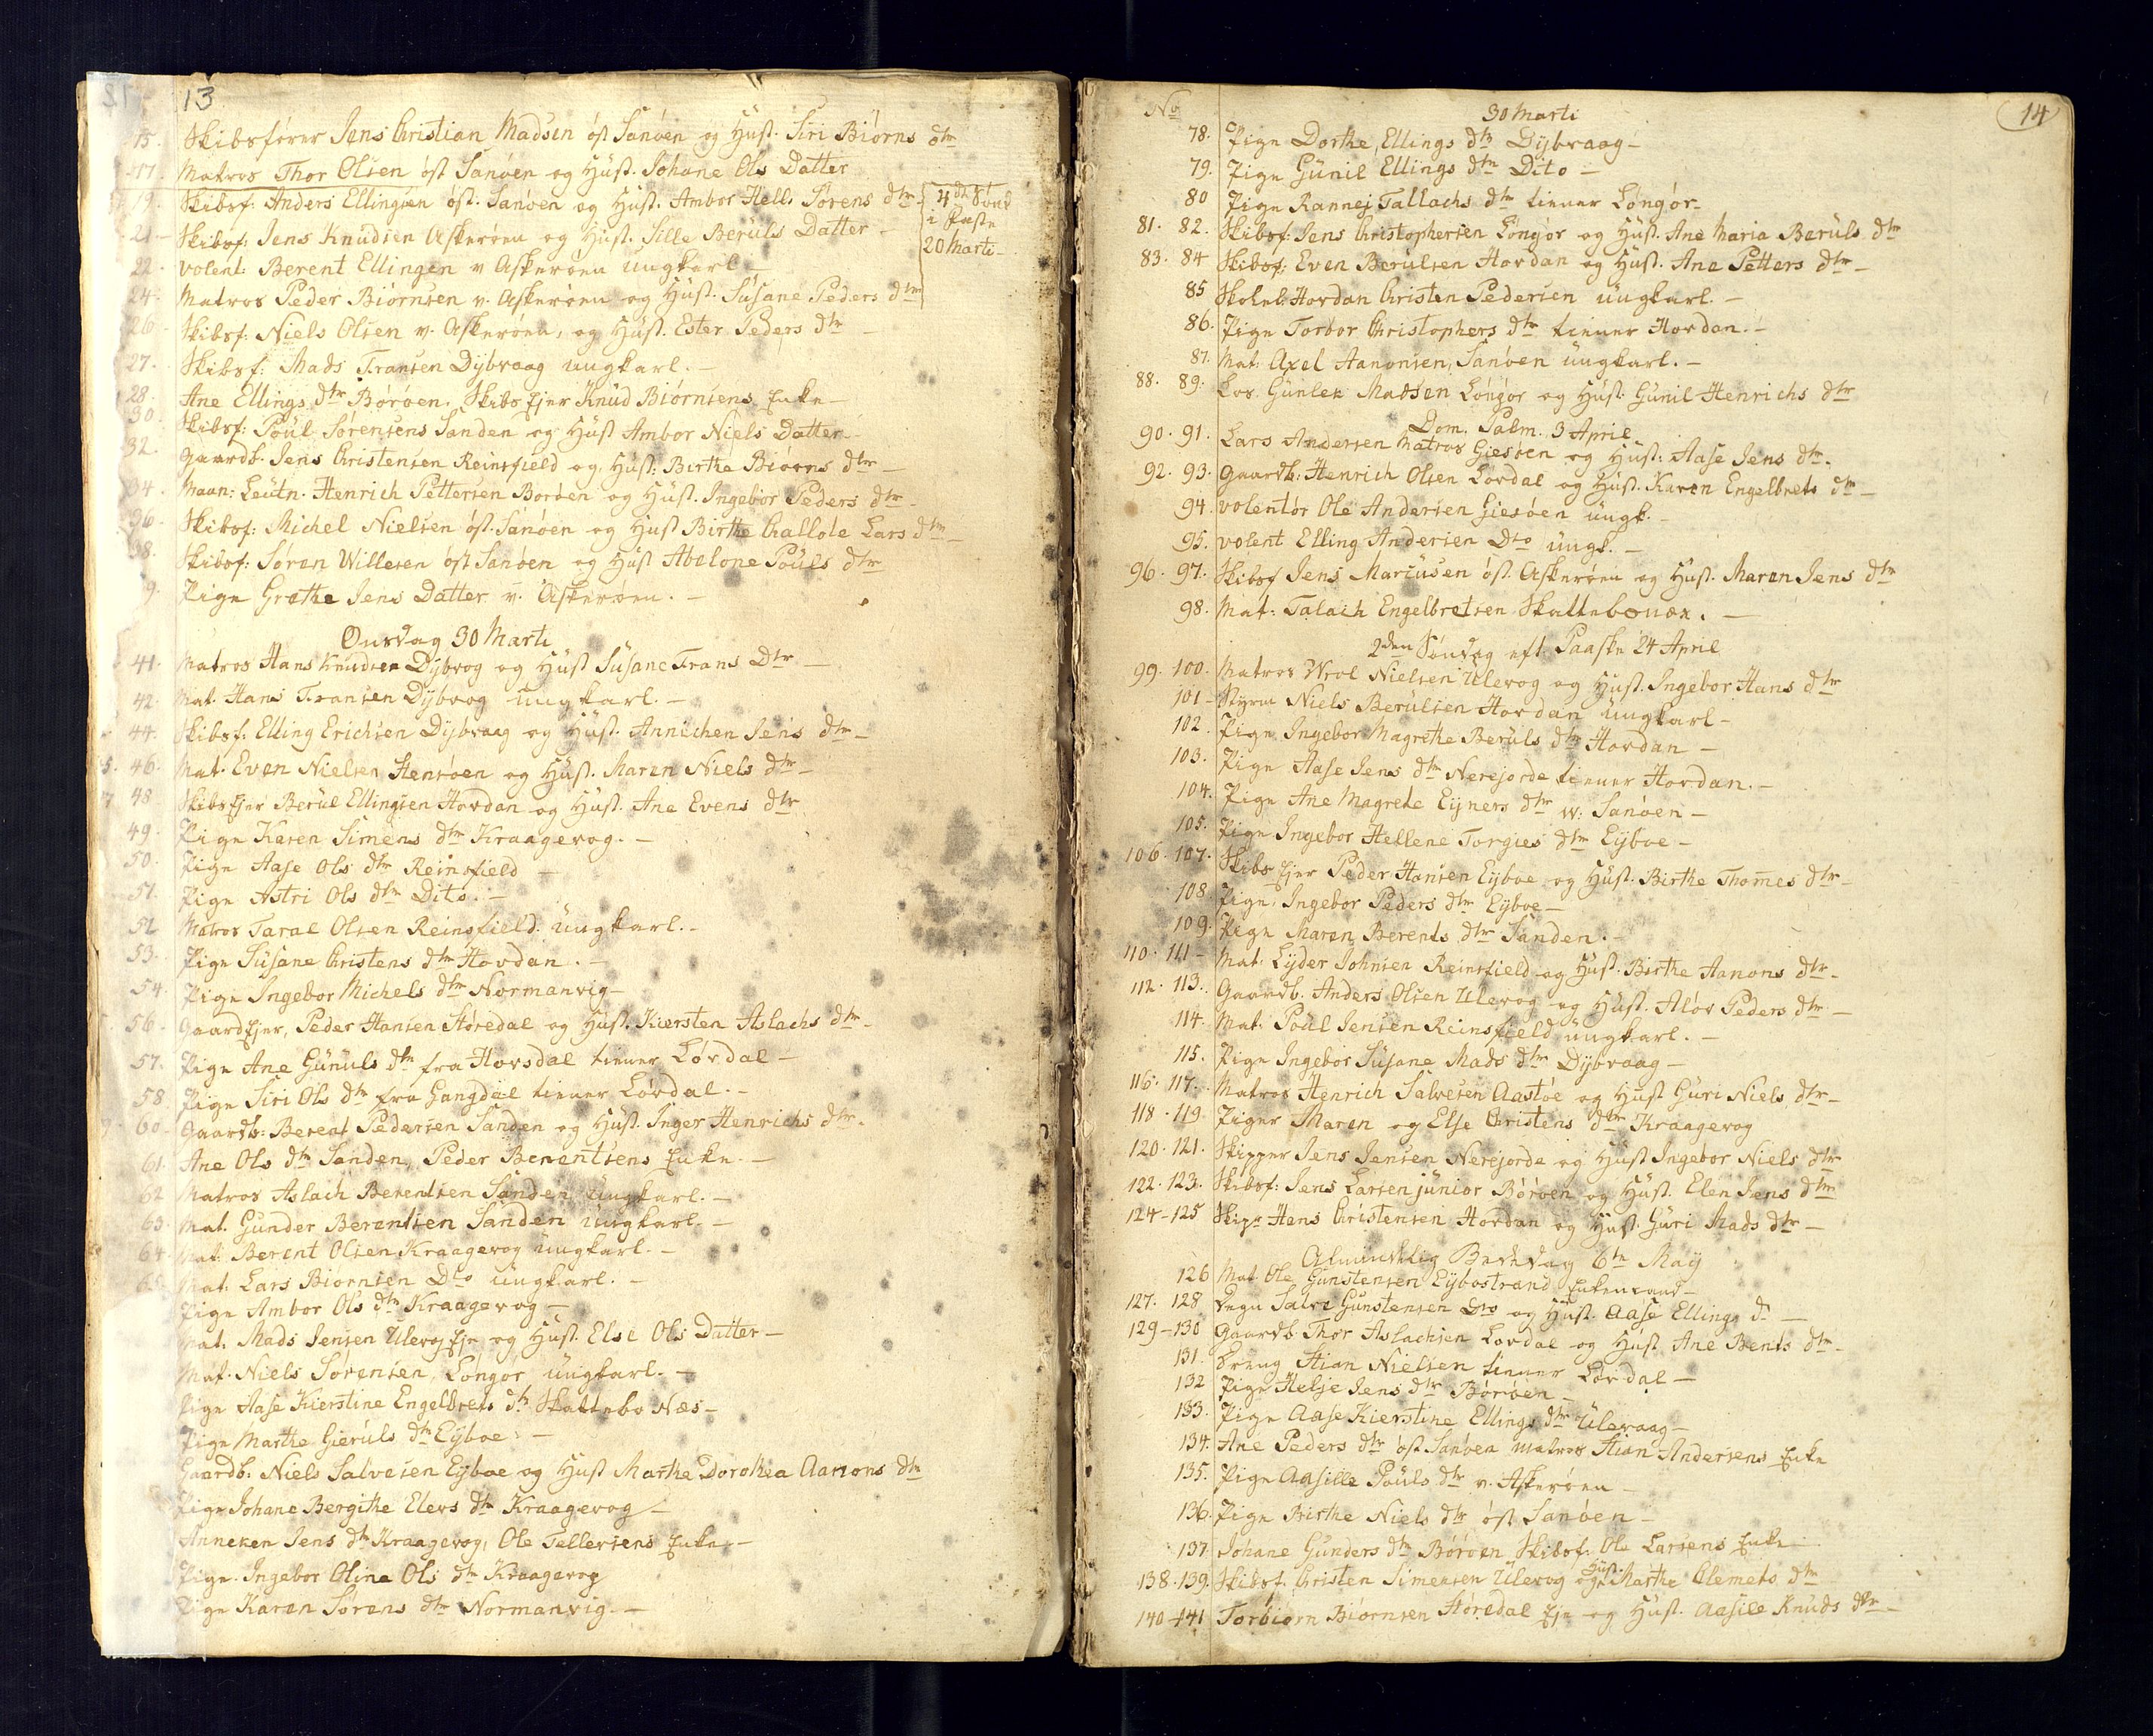 13
15. Skibsfører Jens Christian Madsen öst Sanøen og Hust. Siri Biørns dtr
17. Matros Thor Olsen öst Sanøen og Hust. Johane Ols Datter
19. Skibsf: Anders Ellingsen öst. Sanøen og Hust. Ambor Hell. Sørens dtr
4de Sönd
i Faste
20 Marti
21. Skibsf: Jens Knudsen Askerøen og Hust. Sille Beruls Datter
22. Volent: Berent Ellingen v Askerøen ungkarl
24. Matros Peder Biørnsen v. Askerøen og Hust. Susane Peders dtr
26. Skibsf: Niels Olsen v. Askerøen, og Hust. Ester Peders dtr
27. Skibsf: Mads Fransen Dybvaag ungkarl.
28. Ane Ellings dtr Börøen. Skibs Ejer Knud Biørnsens Enke
30. Skibsf: Poul Sørensens Sanden og Hust Ambor Niels Datter
32. Gaardb. Jens Christensen Reinsfield og Hust: Birthe Biørns dtr
34. Maan: Leutn. Henrich Pettersen Borøen og Hust. Ingebor Peders dtr
36. Skibsf: Michel Nielsen öst. Sanøen og Hust Birthe Lars dtr
38. Skibsf: Søren Willesen öst Sanøen og Hust Abelone Pouls dtr
9. Pige Grethe Jens Datter v. Askerøen.
Onsdag 30 Marti
41. Matros Hans Knudsen Dybvog og Hust Susane Frans Dtr.
42. Mat. Hans Fransen Dybvog ungkarl.
44. Skibsf: Elling Erichsen Dybvaag og Hust. Annichen Jens dtr
5. 46. Mat. Even Nielsen Stensøen og Hust. Maren Niels dtr
7 48 Skibs Ejer Berul Ellingsen Hovdan og Hust. Ane Evens dtr
49. Pige Karen Simens dtr Kraagevog.
50. Pige Aase Ols dtr Reinsfield
51. Pige Astri Ols dtr Dito.
52 Matros Taral Olsen Reinsfield. ungkarl.
53. Pige Susane Christens dtr Hovdan.
54. Pige Ingebor Michels dtr Normanvig
56. Gaard Ejer, Peder Hansen Støredal og Hust. Kiersten Aslachs dtr
57. Pige Ane Gunuls dtr fra Hovsdal tiener Lørdal
58. Pige Siri Ols dtr fra Gangdal tiener Lørdal.
60. Gaardb: Berent Pedersen Sanden og Hust. Inger Henrichs dtr.
61. Ane Ols dtr Sanden, Peder Berentsens Enke.
62 Matros Aslach Berentsen Sanden ungkarl.
63. Mat. Gunder Berentsen Sanden ungkarl.
64. Mat. Berent Olsen Kraagevog ungkarl.
65. Mat: Lars Biørnsen Dto ungkarl.
Pige Ambor Ols dtr Kraagevog
Mat. Mads Jensen Ulevog Eje og Hust. Else Ols Datter
Mat. Niels Sørensen, Löngør ungkarl.
Pige Aase Kierstine Engelbrets dtr Skattebo Næs
Pige Marthe Gieruls dtr Eyboe
Gaardb: Niels Salvesen Eyboe og Hust Marthe Dorothea Aanons dtr
Pige Johane Bergithe Elevs dtr Kraagevog
Anneken Jens dtr Kraagevog, Ole Tellersens Enke
Pige. Ingebor Oline Ols dtr Kraagevog
Pige Karen Sørens dtr Normanvig.
No 30 Marti 14
78. Pige Dorthe, Ellings dtr Dybvaag
79. Pige Gunil Ellings dtr Dito
80 Pige Rannej Tallachs dtr tiener Löngør
81. 82. Skibsf: Jens Christophersen Löngør og Hust. Ane Maria Beruls dtr
83. 84 Skibsf: Even Berulsen Hovdan og Hust. Ane Petters dtr
85 Skolel: Hovdan Christen Pedersen ungkarl.
86. Pige Torbor Christophers dtr tiener Hovdan.
87. Mat: Axel Aanonsen, Sanøen ungkarl.
88. 89. Los. Gunlek Madsen Löngør og Hust. Gunil Henrichs dtr
Dom. Palm. 3 April
90. 91. Lars Andersen Matros Giesøen og Hust: Aase Jens dtr.
92. 93. Gaardb: Henrich Olsen Lørdal og Hust. Karen Engelbrets dtr
94. Volentör Ole Andersen Giesøen ungk.
95. Volent Elling Andersen Dto ungk.
96. 97. Skibsf Jens Marcusen öst. Askerøen og Hust. Maren Jens dtr
98. Mat: Talach Engelbretsen Skattebonæs.
2den Söndag eft. Paaske 24 April
99. 100. Matros Wrol Nielsen Ulevog og Hust. Ingebor Hans dtr
101 Styrm Niels Berulsen Hovdan ungkarl
102. Pige Ingebor Magrethe Beruls dtr Hovdan
103. Pige Aase Jens dtr Nerejorde tiener Hovdan.
104. Pige Ane Magrete Eyners dtr w: Sanøen
105. Pige Ingebor Hellene Torgies dtr Eyboe
106. 107. Skibs Ejer Peder Hansen Eyboe og Hust. Birthe Thomes dtr
108 Pige, Ingebor Peders dtr Eyboe
109. Pige Maren Berents dtr Sanden.
110. 111 Mat: Lyder Johnsen Reinsfield og Hust. Birthe Aanons dtr
112. 113. Gaardb. Anders Olsen Ulevog og Hust. Alör Peders dtr
114. Mat. Poul Jensen Reinsfield ungkarl.
115. Pige Ingebor Susane Mads dtr Dybvaag
116. 117. Matros Henrich Salvesen Aastøe og Hust Guri Niels dtr
118. 119. Piger Maren og Else Christens dtr Kraagevog
120. 121. Skipper Jens Jensen Nerejorde og Hust Ingebor Niels dtr
122. 123. Skibsf: Jens Larsen junior Börøen og Hust. Elen Jens dtr
124-125 Skipr Hans Christensen Hovdan og Hust. Guri Mads dtr
Almindelig Bededag 6te May
126 Mat. Ole Gunstensen Eybostrand Enkemand
127. 128 Degn Salve Gunstensen Dto og Hust. Aase Ellings d
129-130 Gaardb. Thor Aslachsen Lordal og Hust Ane Bents dtr
131. Dreng Stian Nielsen tiener Lördal
132 Pige Helje Jens dtr Börøen
133. Pige Aase Kierstine Ellings dtr Ulevaag
134. Ane Peders dtr öst Sanøen Matros Stian Andersens Enke
135. Pige Aasille Pouls dtr v. Askerøen
136. Pige Birthe Niels dtr öst Sanøen
137. Johane Gunders dtr Börøen Skibsf. Ole Larsens Enke
138. 139. Skibsf. Christen Simensen Ulevog og Hust. Marthe Clemets dtr
140-141 Torbiørn Biørnsen Støredal Eje og Hust. Aasile Knuds dtr